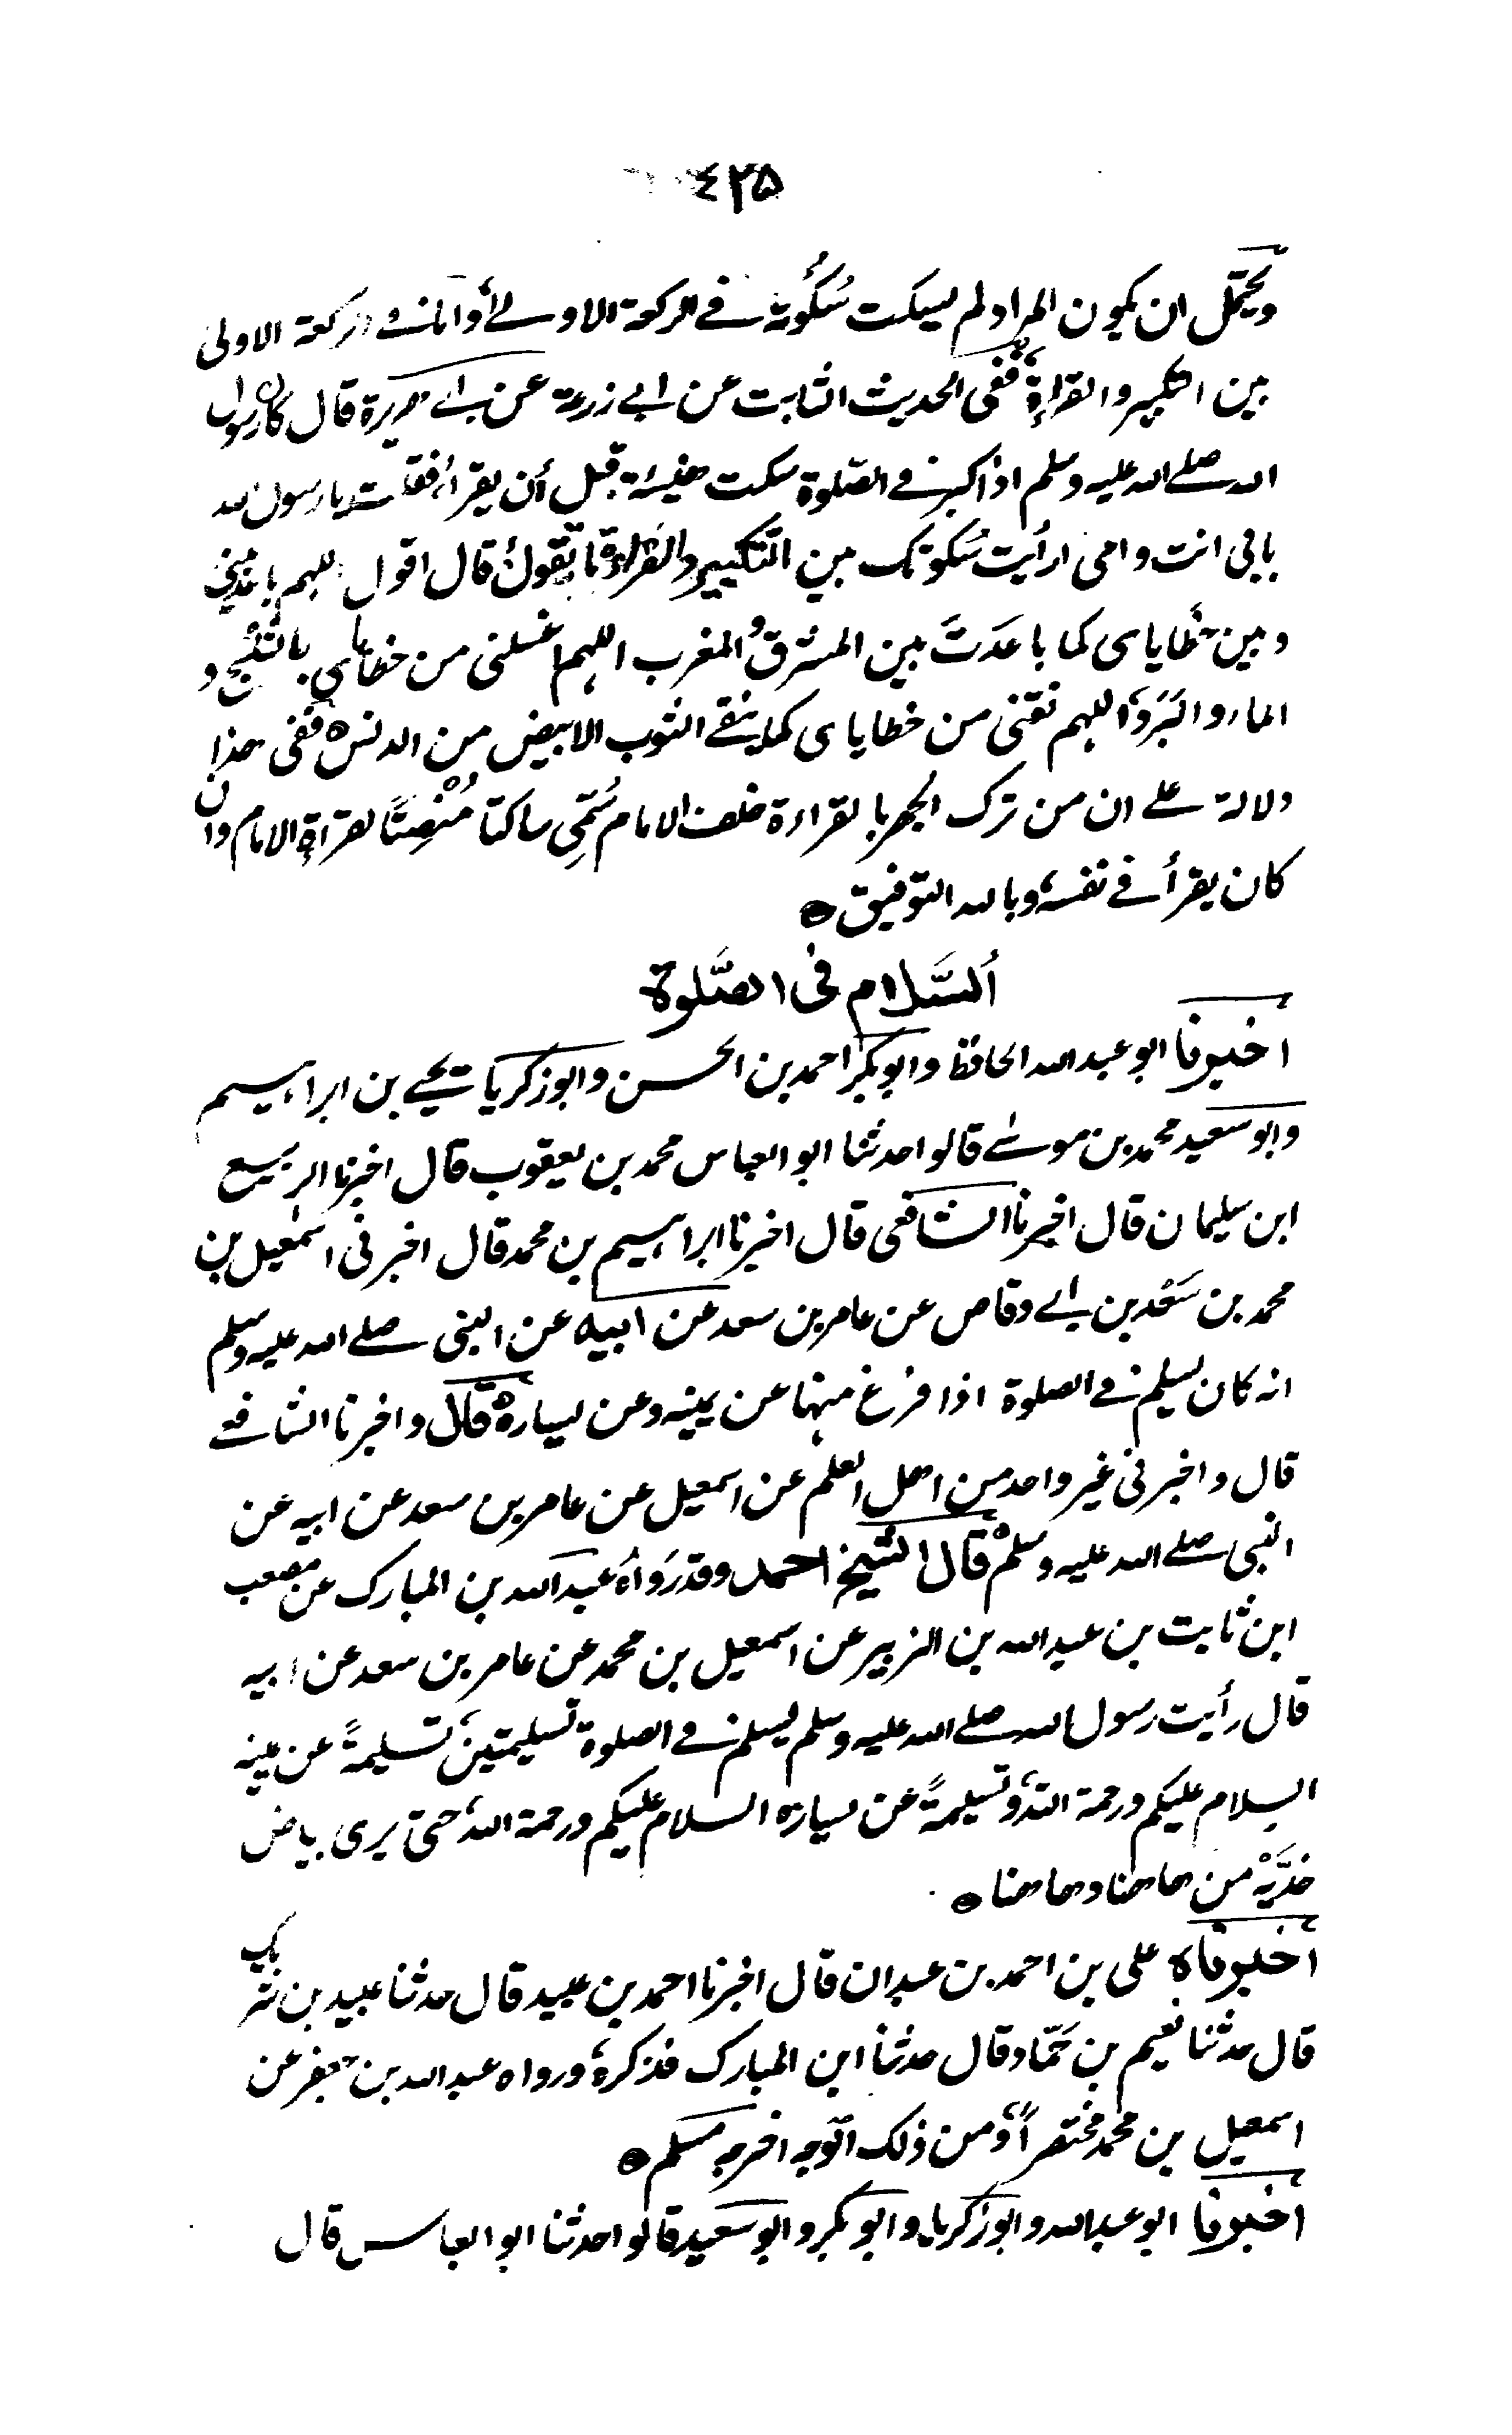 ٤٢۵
ويحتمل ان يكون المراد لم يسكت سُكُوته في الركعة الاولى أو اما في الركعة الاولى
بين التكبير والقراءة ففى الحديث الثابت عن ابي زرعة عن ابي هريرة قال كان رسول
الله صلى الله عليه وسلم اذا كبر في الصّلوة سكت هنيئة قبل أن يقرأ فقلت يا رسول الله
بابى انت وامى ارأيت سُكوتك بين التّكبير والقراءة ما تقول قال اقول اللهم باعد بينى
وبين خطاياى كما باعَدتَّ بين المشرق والمغرب اللهم اغسلنى من خطاياي بالثلج و
الماء والبَرَد اللهم نقنى من خطاياى كما ينقى الثوب الابيض من الدنس ففى هذا
دلالة على ان من ترك الجهر بالقراءة خلف الامام سُمّي ساكتا مُنْصِتًا لقراءة الامام وان
كان يقرأ في نفسه وبالله التوفيق ٥
اَلسَّلام فى الصَّلوة
اخبرنا ابو عبد الله الحافظ وابو بكر احمد بن الحسن وابو زكريا يحيى بن ابراهيم
وابو سعيد محمد بن موسى قالوا حدثنا ابو العباس محمد بن يعقوب قال اخبرنا الربيع
ابن سليمان قال اخبرنا الشافعى قال اخبرنا ابراهيم بن محمد قال اخبرنى اسمعيل بن
محمد بن سَعْد بن ابي وقاص عن عامر بن سعد عن ابيه عن النبى صلى الله عليه وسلم
انه كان يسلم في الصلوة اذا فرغ منها عن يمينه وعن يساره قال واخبرنا الشافعي
قال واخبرنى غير واحد من اهل العلم عن اسمعيل عن عامر بن سعد عن ابيه عن
النبى صلى الله عليه وسلم قال الشيخ احمد وقد رَوَاهُ عبد الله بن المبارك عن مصعب
ابن ثابت بن عبد الله بن الزبير عن اسمعيل بن محمد عن عامر بن سعد عن ابيه
قال رأيت رسول الله صلى الله عليه وسلم يسلم في الصلوة تسليمتين تسليمةً عن يمينه
السلام عليكم ورحمة الله وتسليمةً عن يساره السلام عليكم ورحمة الله حتى يرى بياض
خدَّيْه من هاهنا وهاهنا ٥
اخبرناه على بن احمد بن عبدان قال اخبرنا احمد بن عبيد قال حدثنا عبيد بن شريك
قال حدثنا نعيم بن حَمّاد قال حدثنا ابن المبارك فذكره ورواه عبد الله بن جعفر عن
اسمعيل بن محمد مختصراً ومن ذلك الوجه اخرجه مسلم ٥
اخبرنا ابو عبد الله وابو زكريا وابو بكر وابو سعيد قالوا حدثنا ابو العباس قال